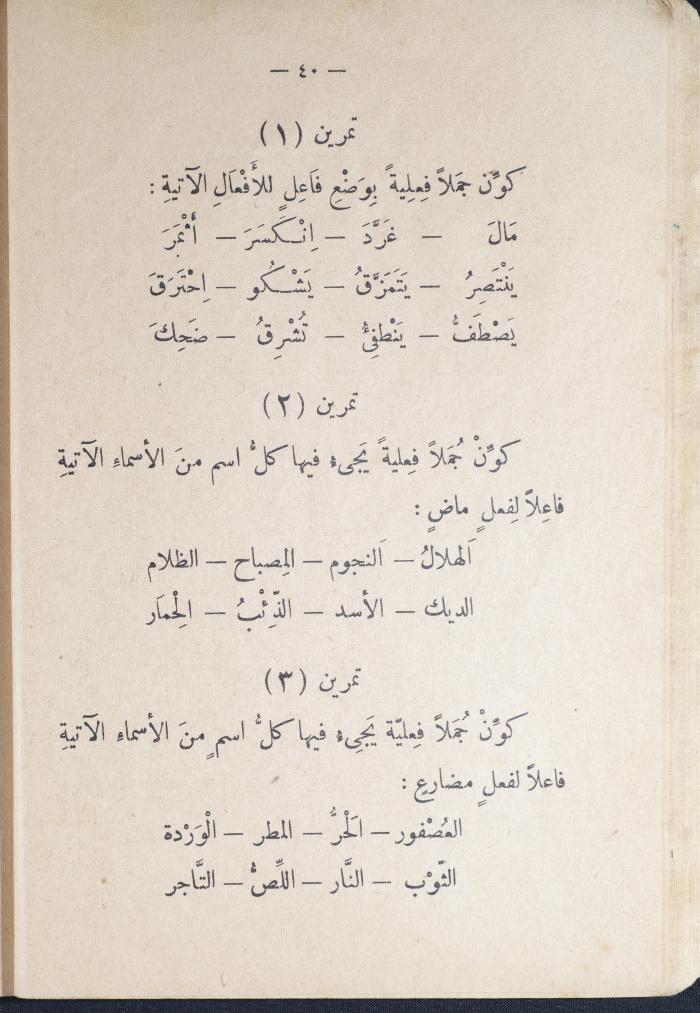 — ٤٠ —
تمرين (١)
كوِّن جمَلاً فِعِليةً بِوَضْعِ فَاعِلٍ للأَفْعَالِ الآتيةِ :
مَالَ — غَرَّدَ — اِنْكَسَرَ — أَثْمَرَ
يَنْتَصِرُ — يَتَمَزَّقُ — يَشْكُو — اِحْتَرَقَ
يَصْطَفُّ — يَنْطفِئُ — تُشْرِقُ — ضَحِكَ
تمرين (٢)
كوِّنْ جُمَلاً فِعِليةً يَجىءُ فيها كلُّ اسم منَ الأسماءِ الآتيةِ
فاعِلاً لِفعلٍ ماضٍ :
اَلهلالُ — اَلنجوم — المِصباح — الظلام
الديك — الأسد — الذِّئْبُ — الْحِمَار
تمرين (٣)
كوِّنْ جُمَلاً فِعليّة يَجِىءُ فيها كلُّ اسمٍ منَ الأسماءِ الآتيةِ
فاعلاً لفعلٍ مضارعٍ :
العُصْفور — اَلْحرُّ — المطر — الْوَرْدة
الثّوْب — النَّار — اللِّصُّ — التَّاجر